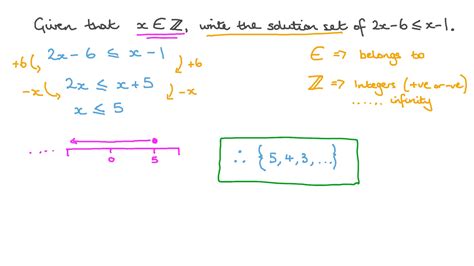 Given that x ∈ ℤ, write the solution set of 2x-6 ≤ x-1.
2x - 6 ≤ x - 1
+6 +6
2x ≤ x + 5
-x -x
x ≤ 5
∈ => belongs to
ℤ => Integers (+ve or -ve)
...... infinity
....
0 5
∴ {5, 4, 3, ...}